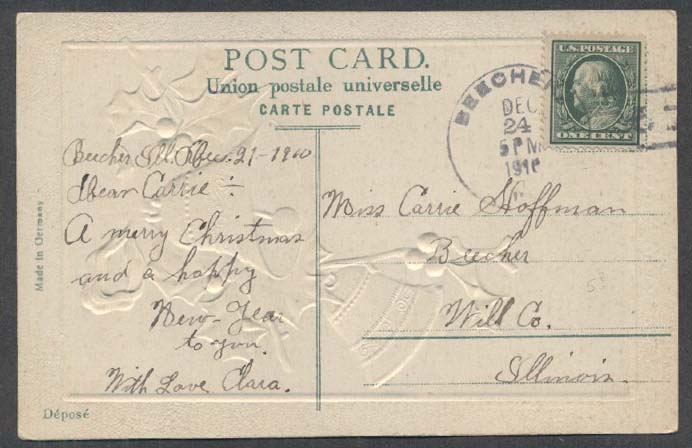 POST CARD.
Union postale universelle
CARTE POSTALE
U.S. POSTAGE
ONE CENT
BEECHER
DEC
24
5 PM
1910
Beecher, Ill. Dec. 21-1910
Dear Carrie:-
A merry Christmas
and a happy
New-Year
to you.
With Love Clara.
Miss Carrie Hoffman
Beecher
Will Co.
Illinois.
Made in Germany
Déposé